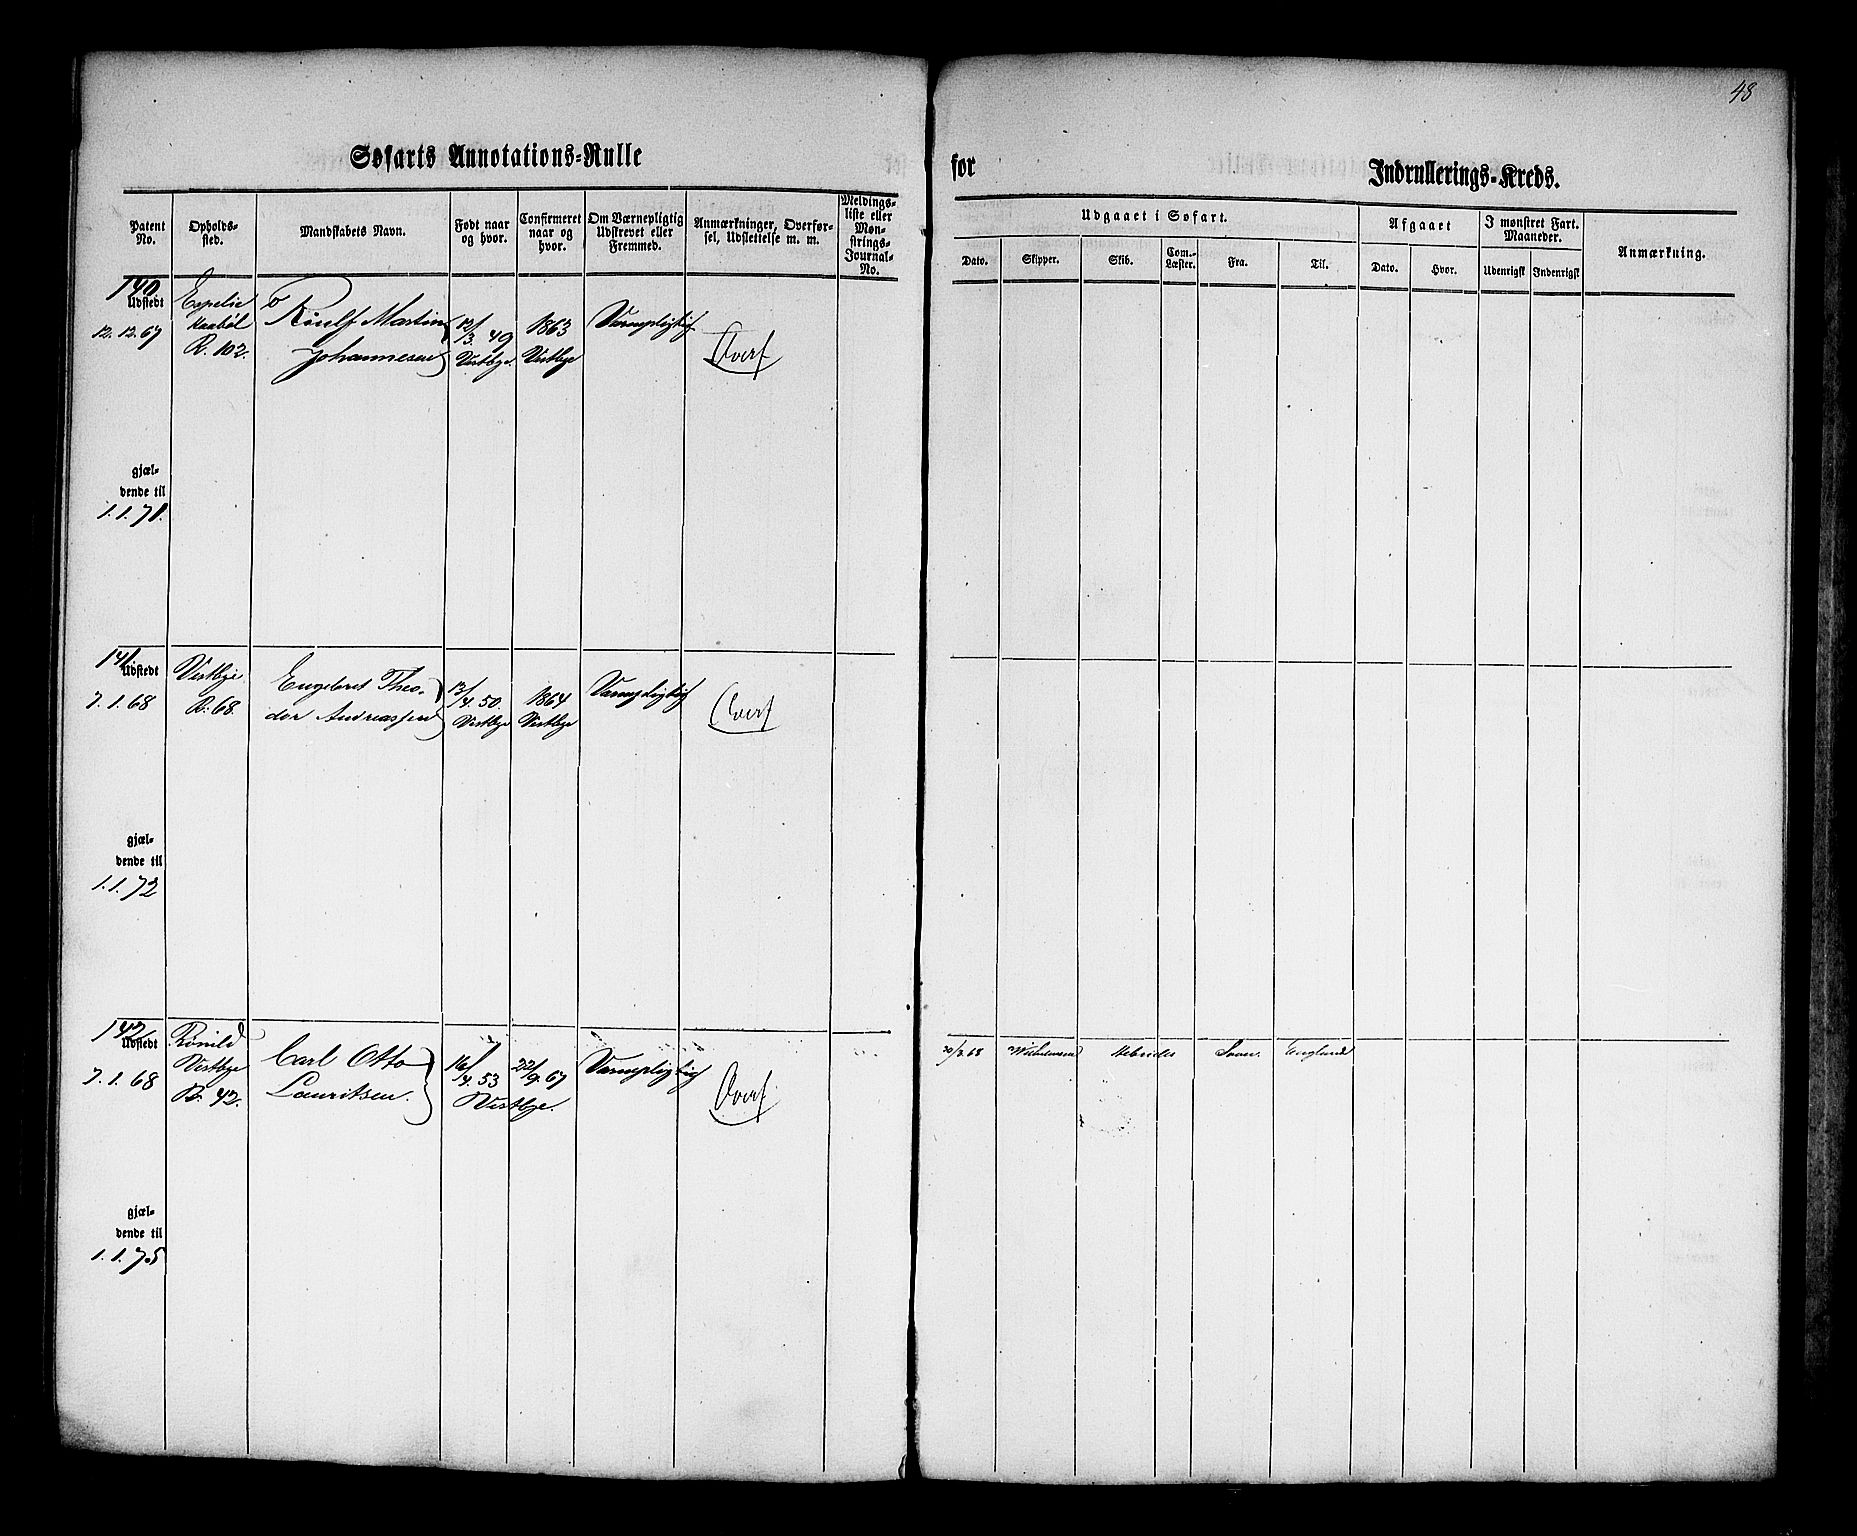 48
Søfarts Annotations-Rulle
for
Indrullerings-Kreds.
Patent No.
Opholds-sted.
Mandskabets Navn.
Født naar og hvor.
Confirmeret naar og hvor.
Om Værnepligtig Udskrevet eller Fremmed.
Anmærkninger, Overførsel, Udslettelse m. m.
Meldings-liste eller Mønstrings-Journal-No.
Udgaaet i Søfart.
Afgaaet
I mønstret Fart. Maaneder.
Anmærkning.
Dato.
Skipper.
Skib.
Com.-Læster.
Fra.
Til.
Dato.
Hvor.
Udenrigsk
Indenrigsk
140
Udstedt
12.12.67
Espelie
R. 102.
Martin
Johannesen
12/3 49
Vestbye
1863
Vestbye
Værnepligtig
Overf
gjæl-
dende til
1.1.71.
141
Udstedt
7.1.68
Vestbye
R. 68.
Engebret Theo-
dor Andreassen
13/4. 50.
Vestbye
1864
Vestbye
Værnepligtig
Overf
gjæl-
dende til
1.1.72
142
Udstedt
7.1.68
Vestbye
R. 42.
Carl Otto
Lauritsen.
16/4. 53
22/9. 67
Vestbye.
Værnepligtig
Overf
Soon.
England
gjæl-
dende til
1.1.75